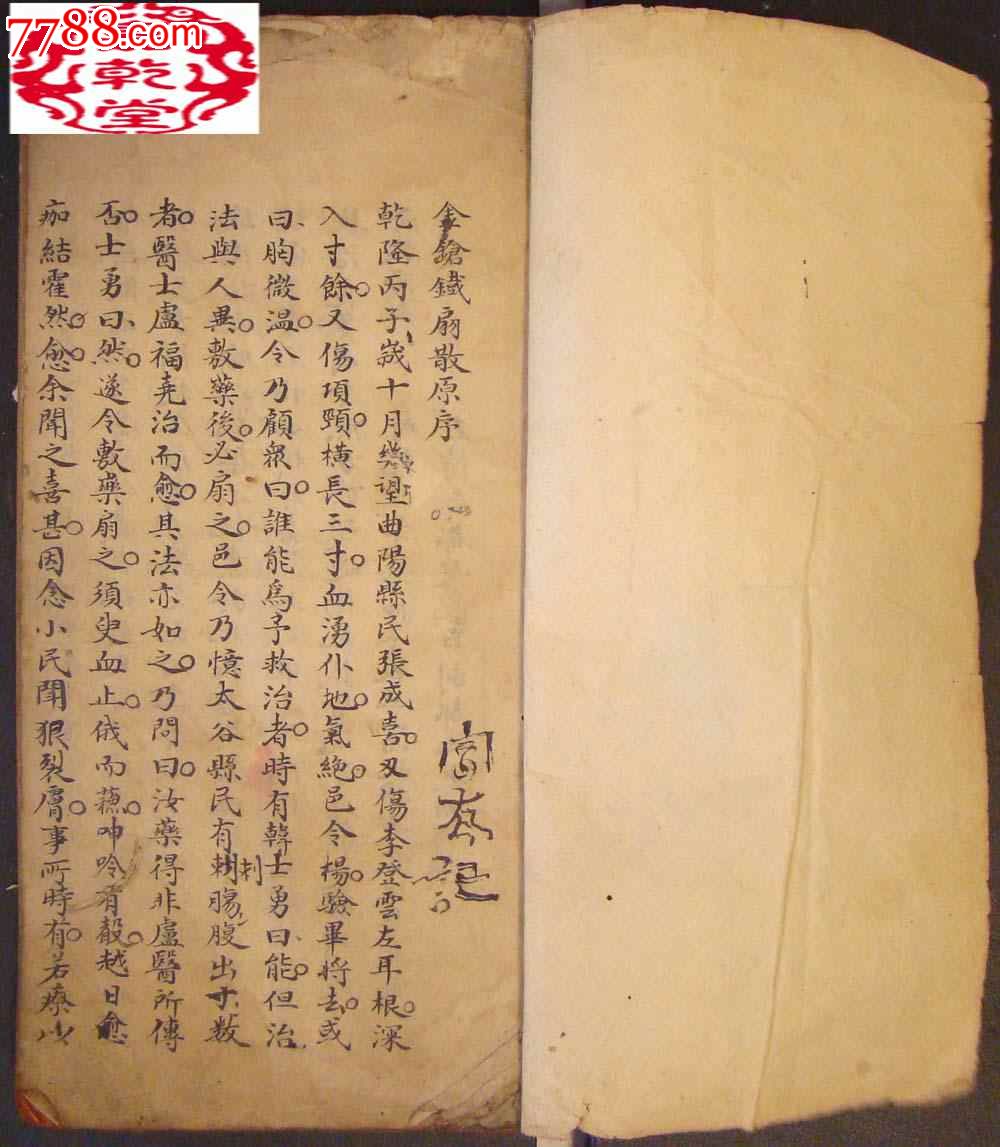 7788.com
乾
堂
金鎗鐵扇散原序
乾隆丙子歲十月幾望曲陽縣民張成喜刄傷李登雲左耳根深
入寸餘又傷項頸橫長三寸血湧仆地氣絶邑令楊驗畢將去或
曰胸微温令乃顧衆曰誰能爲予救治者時有韓士勇曰能但治
法與人異敷藥後必扇之邑令乃憶太谷縣民有刺腸腹出寸数
者醫士盧福堯治而愈其法亦如之乃問曰汝藥得非盧醫所傳
否士勇曰然遂令敷藥扇之須臾血止俄而蘓呻吟有聲越日愈
痂結霍然愈余聞之喜甚因念小民鬪狠裂膚事所時有若療以